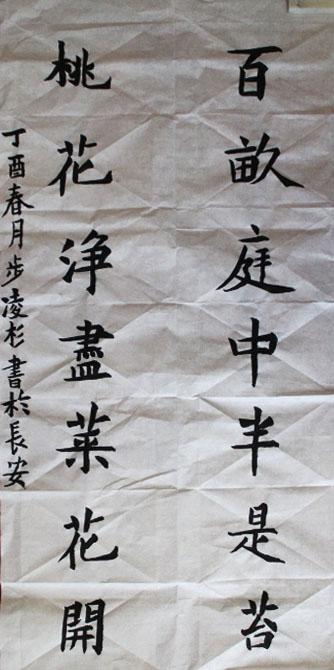 百畝庭中半是苔
桃花浄盡菜花開
丁酉春月步凌杉書於長安